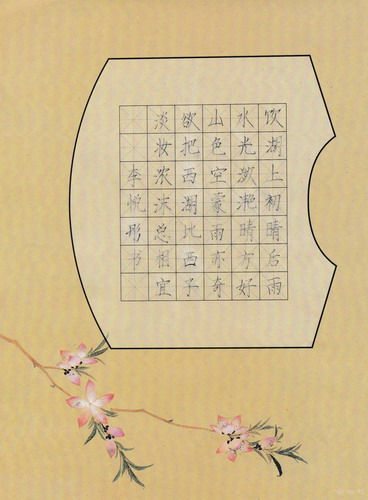 饮湖上初晴后雨
水光潋滟晴方好
山色空蒙雨亦奇
欲把西湖比西子
淡妆浓沫总相宜
李悦彤书